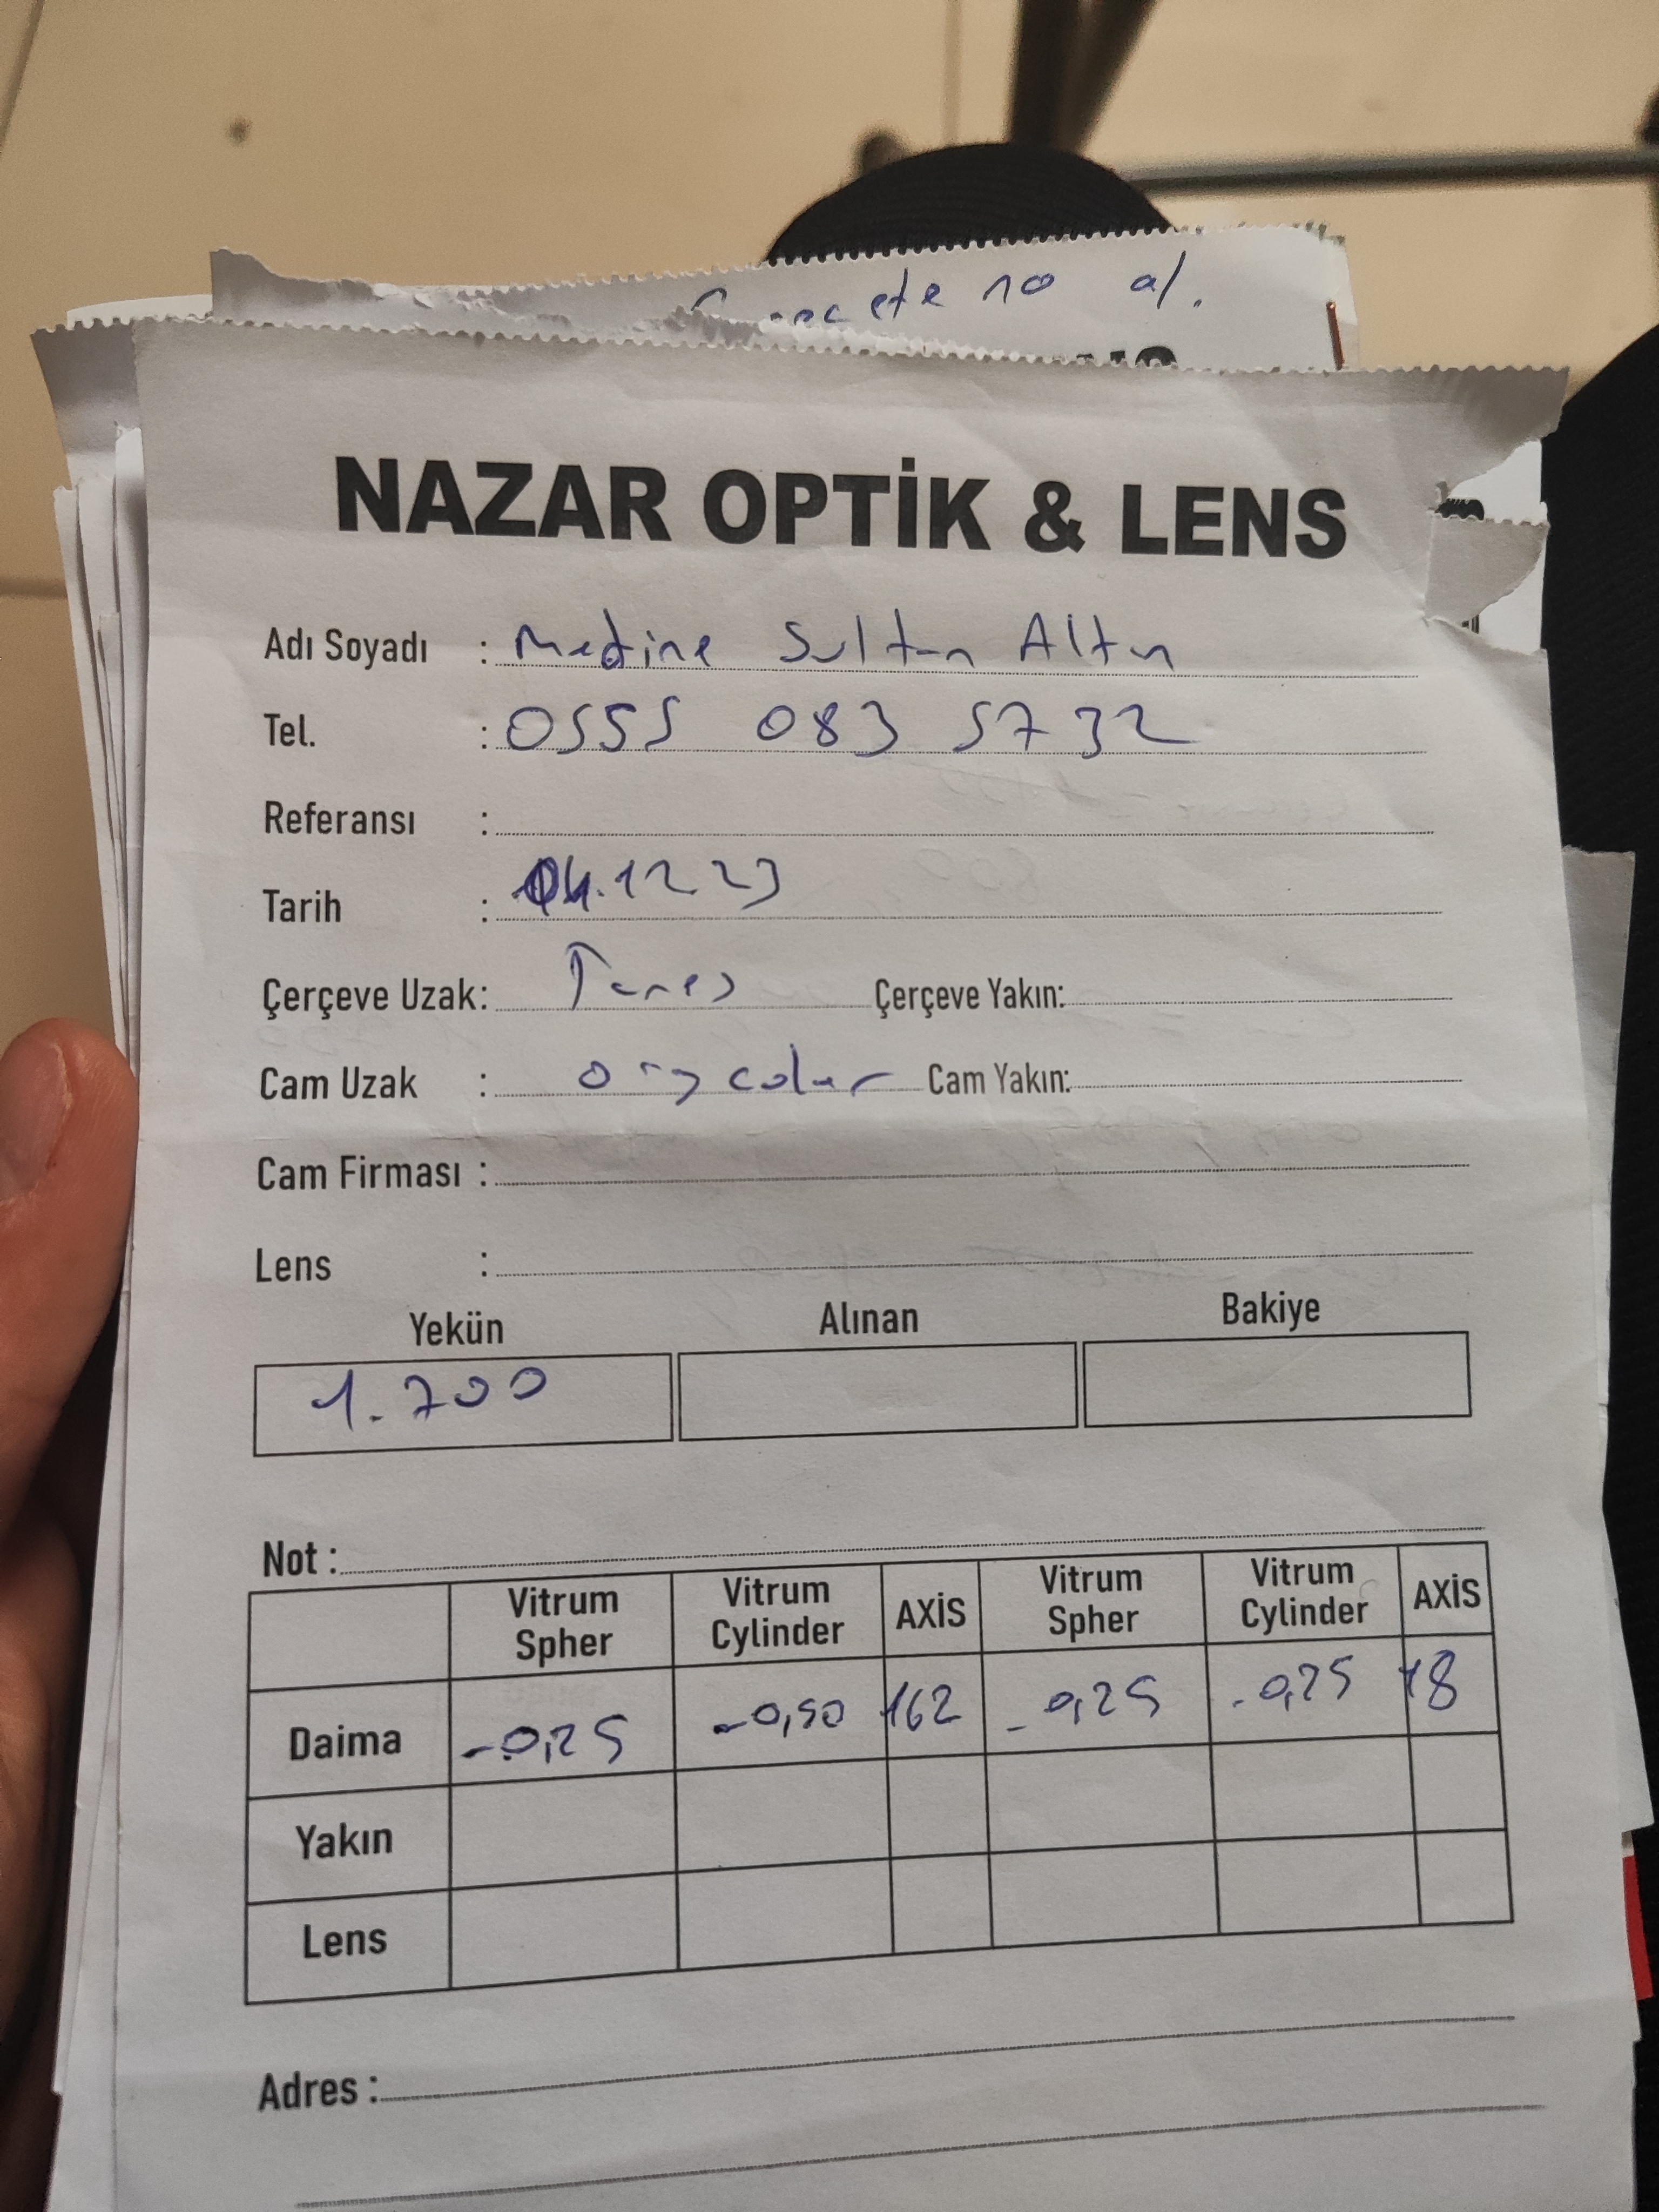 reçete no al.
NAZAR OPTİK & LENS
Adı Soyadı : Medine Sultan Altın
Tel. : 0555 083 5732
Referansı :
Tarih : 04.12 23
Çerçeve Uzak: Çerçeve Yakın:
Cam Uzak : org color Cam Yakın:
Cam Firması :
Lens :
Yekün Alınan Bakiye
1.700
Not :
Vitrum Spher Vitrum Cylinder AXİS Vitrum Spher Vitrum Cylinder AXİS
Daima -0,25 -0,50 162 -0,25 -0,25 18
Yakın
Lens
Adres :